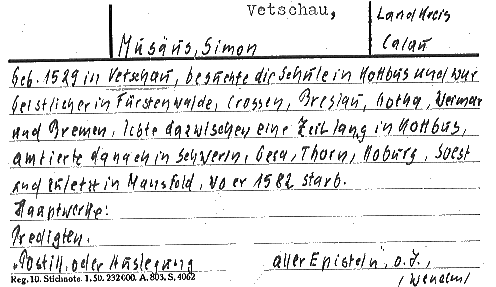 Vetschau,
Landkreis
Musäus, Simon
Calau
Geb. 1529 in Vetschau, besuchte die Schule in Kottbus und war
Geistlicher in Fürstenwalde, Crossen, Breslau, Gotha, Weimar
und Bremen, lebte dazwischen eine Zeit lang in Kottbus,
amtierte danach in Schwerin, Gera, Thorn, Koburg, Soest
und zuletzt in Mansfeld, wo er 1582 starb.
Hauptwerke:
Predigten.
"Postill, oder Auslegung aller Episteln", o.J.,
Reg. 10. Stichnote. 1. 50. 232000. A. 803. S. 4062